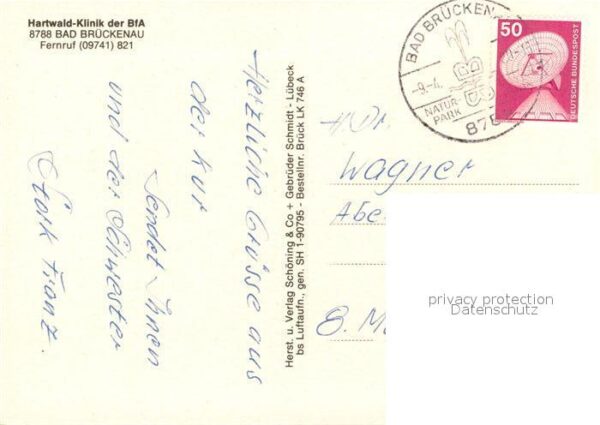 Hartwald-Klinik der BfA
8788 BAD BRÜCKENAU
Fernruf (09741) 821
Herzliche Grüsse aus
der Kur
sendet Ihnen
und der Schwester
Stork Franz.
Herst. u. Verlag Schöning & Co + Gebrüder Schmidt - Lübeck
bs Luftaufn., gen. SH 1-90795 - Bestellnr. Brück LK 746 A
BAD BRÜCKENAU
-9.-4.
NATUR-
PARK
878
50
DEUTSCHE BUNDESPOST
Wagner
Abe
8. M
privacy protection
Datenschutz